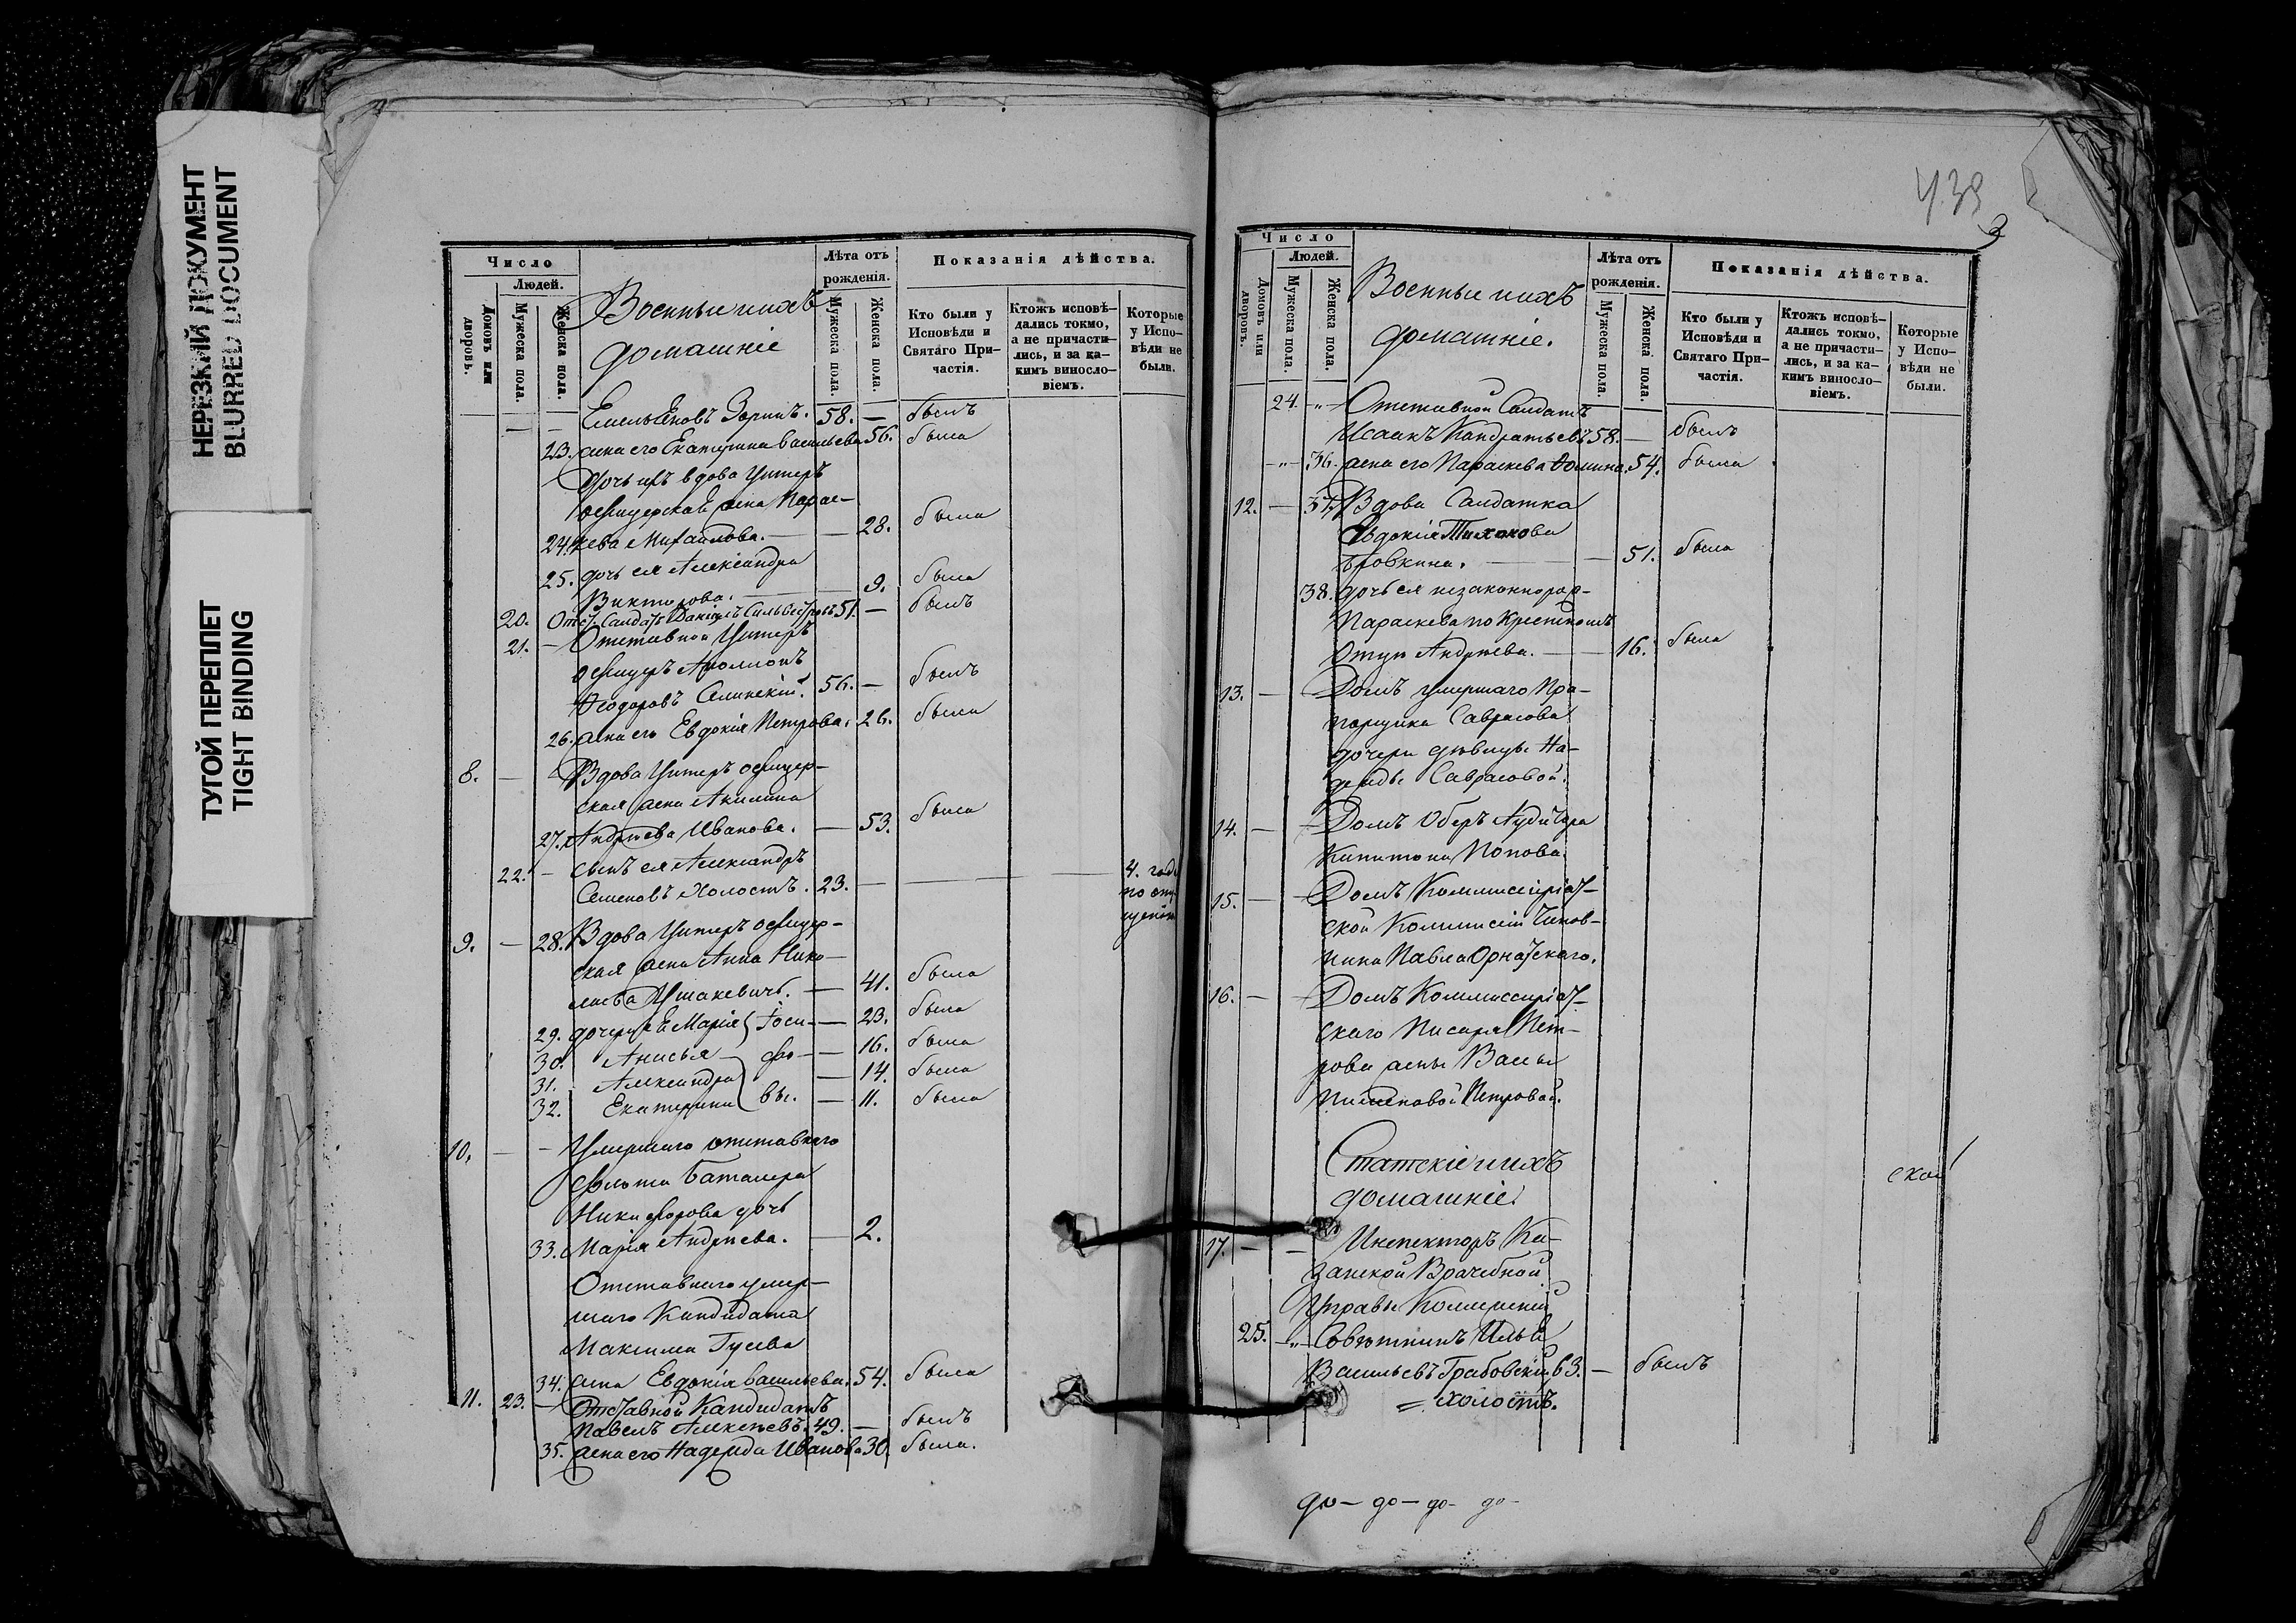 НЕРЕЗКИЙ ДОКУМЕНТ
BLURRED DOCUMENT
ТУГОЙ ПЕРЕПЛЕТ
TIGHT BINDING
Число
Людей.
Домовъ или дворовъ.
Мужеска пола.
Женска пола.
Военные и ихъ
домашніе
Лѣта отъ
рожденія.
Мужеска пола.
Женска пола.
Показанія дѣйства.
Кто были у
Исповѣди и
Святаго При-
частія.
Ктожъ исповѣ-
дались токмо,
а не причасти-
лись, и за ка-
кимъ винословіемъ.
Которые
у Испо-
вѣди не
были.
Емельяновъ Зоринъ. 58. — былъ
23. жена его Екатерина Васильева 56. была
Дочь ихъ вдова Унтеръ
офицерская жена Парас-
24. кева Михайлова. — — 28. была
25. дочь ея Александра
Викторова. — 9. была
20. Отст. Солдатъ Даніилъ Сильвестровъ 51. — былъ
21. — Отставной Унтеръ
офицеръ Аполлонъ
Ѳедоровъ Селинскій. 56. — былъ
26. жена его Евдокія Петрова. 26. была
8. — Вдова Унтеръ офицер-
ская жена Акилина
27. Андреева Иванова. — 53. была
22. — сынъ ея Александръ
Семеновъ Холостъ. 23. — 4. года
по
9. — 28. Вдова Унтеръ офицер-
ская жена Анна Нико-
лаева Ушакевичъ. — 41. была
29. дочери ея Марія Іоси- — 23. была
30. Анисья фо- — 16. была
31. Александра — 14. была
32. Екатерина вы. — 11. была
10. — — Умершаго отставнаго
флота Баталера
Никифорова дочь
33. Марія Андреева. — 2.
Отставнаго умер-
шаго Кандидата
Максима Гусева
34. жена Евдокія Васильева. 54. была
11. 23. — Отставной Кандидатъ
Павелъ Алексѣевъ. 49. — былъ
35. жена его Надежда Иванова 30. была.
439
Число
Людей.
Домовъ или дворовъ.
Мужеска пола.
Женска пола.
Военные и ихъ
домашніе.
Лѣта отъ
рожденія.
Мужеска пола.
Женска пола.
Показанія дѣйства.
Кто были у
Исповѣди и
Святаго При-
частія.
Ктожъ исповѣ-
дались токмо,
а не причасти-
лись, и за ка-
кимъ винословіемъ.
Которые
у Испо-
вѣди не
были.
24. „ Отставной Солдатъ
Исаакъ Кандратьевъ 58. — былъ
„ 36. жена его Параскева Ѳомина. 54. была
12. — 37. Вдова Салдатка
Евдокія Тихонова
Бровкина. — — 51. была
38. дочь ея незаконнорож-
Параскева по Крестномъ
Отцу Андреева. — — 16. была
13. — Домъ умершаго Пра-
порщика Саврасова
дочери дѣвицы На-
дежды Саврасовой.
14. — — Домъ Оберъ Аудитора
Капитона Попова.
15. — — Домъ Коммисаріат-
ской Коммисіи Чинов-
ника Павла Орнатскаго.
16. — — Домъ Коммиссаріат-
скаго Писаря Пет-
рова жены Вассы
Пименовой Петровой.
Статскіе и ихъ
домашніе.
ской
17. — — Инспекторъ Ка-
занской Врачебной
Управы Коллежскій
25. „ Совѣтникъ Илья
Васильевъ Грабовскій 63. — былъ
= холостъ.
до — до — до — до —